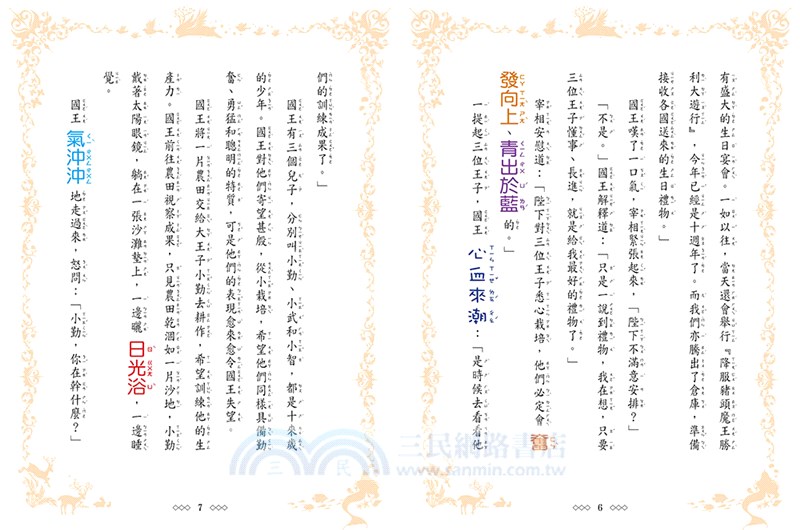 有盛大的生日宴會。一如以往，當天還會舉行『降服豬頭魔王勝
利大遊行』，今年已經是十週年了。而我們亦騰出了倉庫，準備
接收各國送來的生日禮物。」
國王嘆了一口氣，宰相緊張起來，「陛下不滿意安排？」
「不是。」國王解釋道：「只是一說到禮物，我在想，只要
三位王子懂事、長進，就是給我最好的禮物了。」
宰相安慰道：「陛下對三位王子悉心栽培，他們必定會奮
發向上、青出於藍的。」
一提起三位王子，國王心血來潮：「是時候去看看他
6
們的訓練成果了。」
國王有三個兒子，分別叫小勤、小武和小智，都是十來歲
的少年。國王對他們寄望甚殷，從小栽培，希望他們同樣具備勤
奮、勇猛和聰明的特質，可是他們的表現愈來愈令國王失望。
國王將一片農田交給大王子小勤去耕作，希望訓練他的生
產力。國王前往農田視察成果，只見農田乾涸如一片沙地，小勤
戴著太陽眼鏡，躺在一張沙灘墊上，一邊曬日光浴，一邊睡
覺。
國王氣沖沖地走過來，怒問：「小勤，你在幹什麼？」
7
三民網路書店
www.sanmin.com.tw
三 民